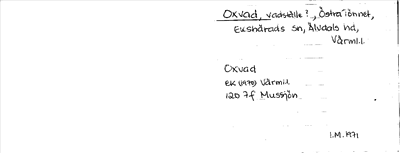 Oxvad, vadställe?, Östra lönnet,
Ekshärads sn, Älvdals hd,
Värml.l.
Oxvad
EK (1970) Värml.l
12D 7f Mussjön
I.M. 1971